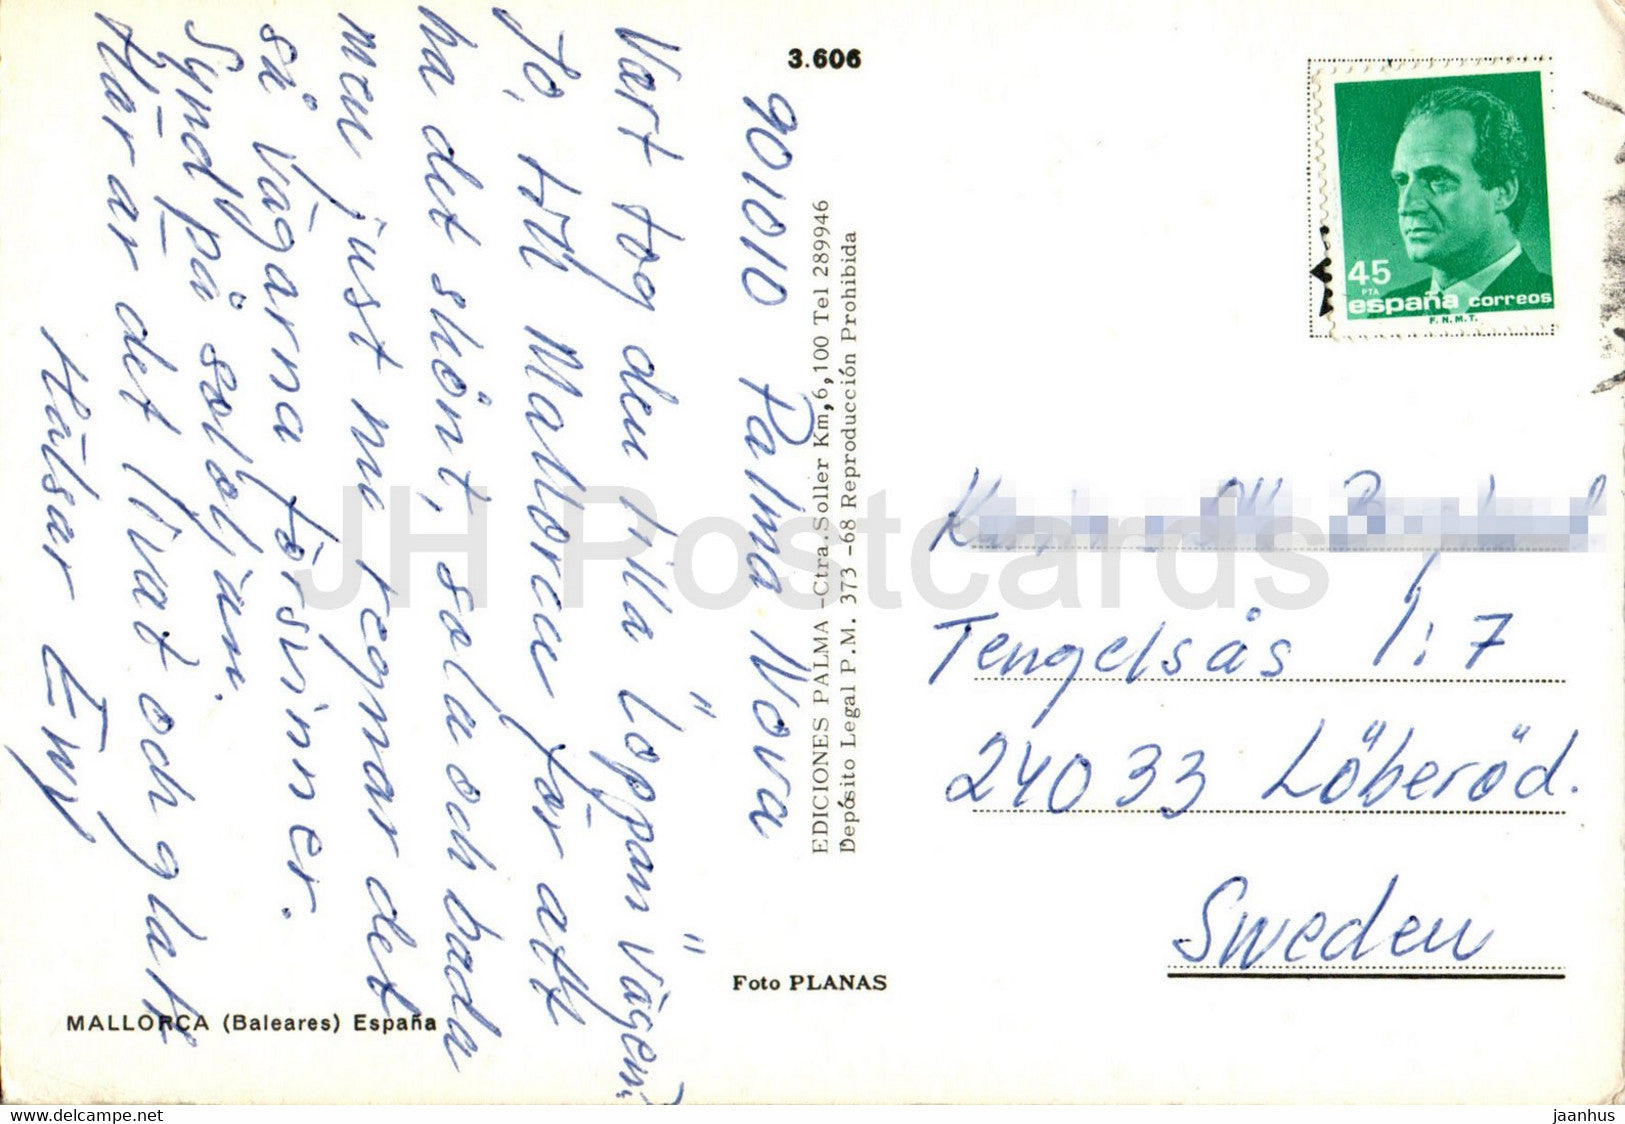 3.606
901010 Palma Nova
Vart tog den lilla "Loppan" vägen?
Jo, till Mallorca för att
ha det skönt, sola och bada
men just nu regnar det
så Vågarna försvinner.
Synd på sololjan.
Här är det livat och glatt
Hälsar Emy
EDICIONES PALMA -Ctra. Soller Km, 6,100 Tel 289946
Depósito Legal P.M. 373 -68 Reproducción Prohibida
Foto PLANAS
MALLORCA (Baleares) España
45
PTA
españa correos
F.N.M.T.
Tengelsås 1:7
24033 Löberöd.
Sweden
JH Postcards
https://www.delcampe.net
jaanhus